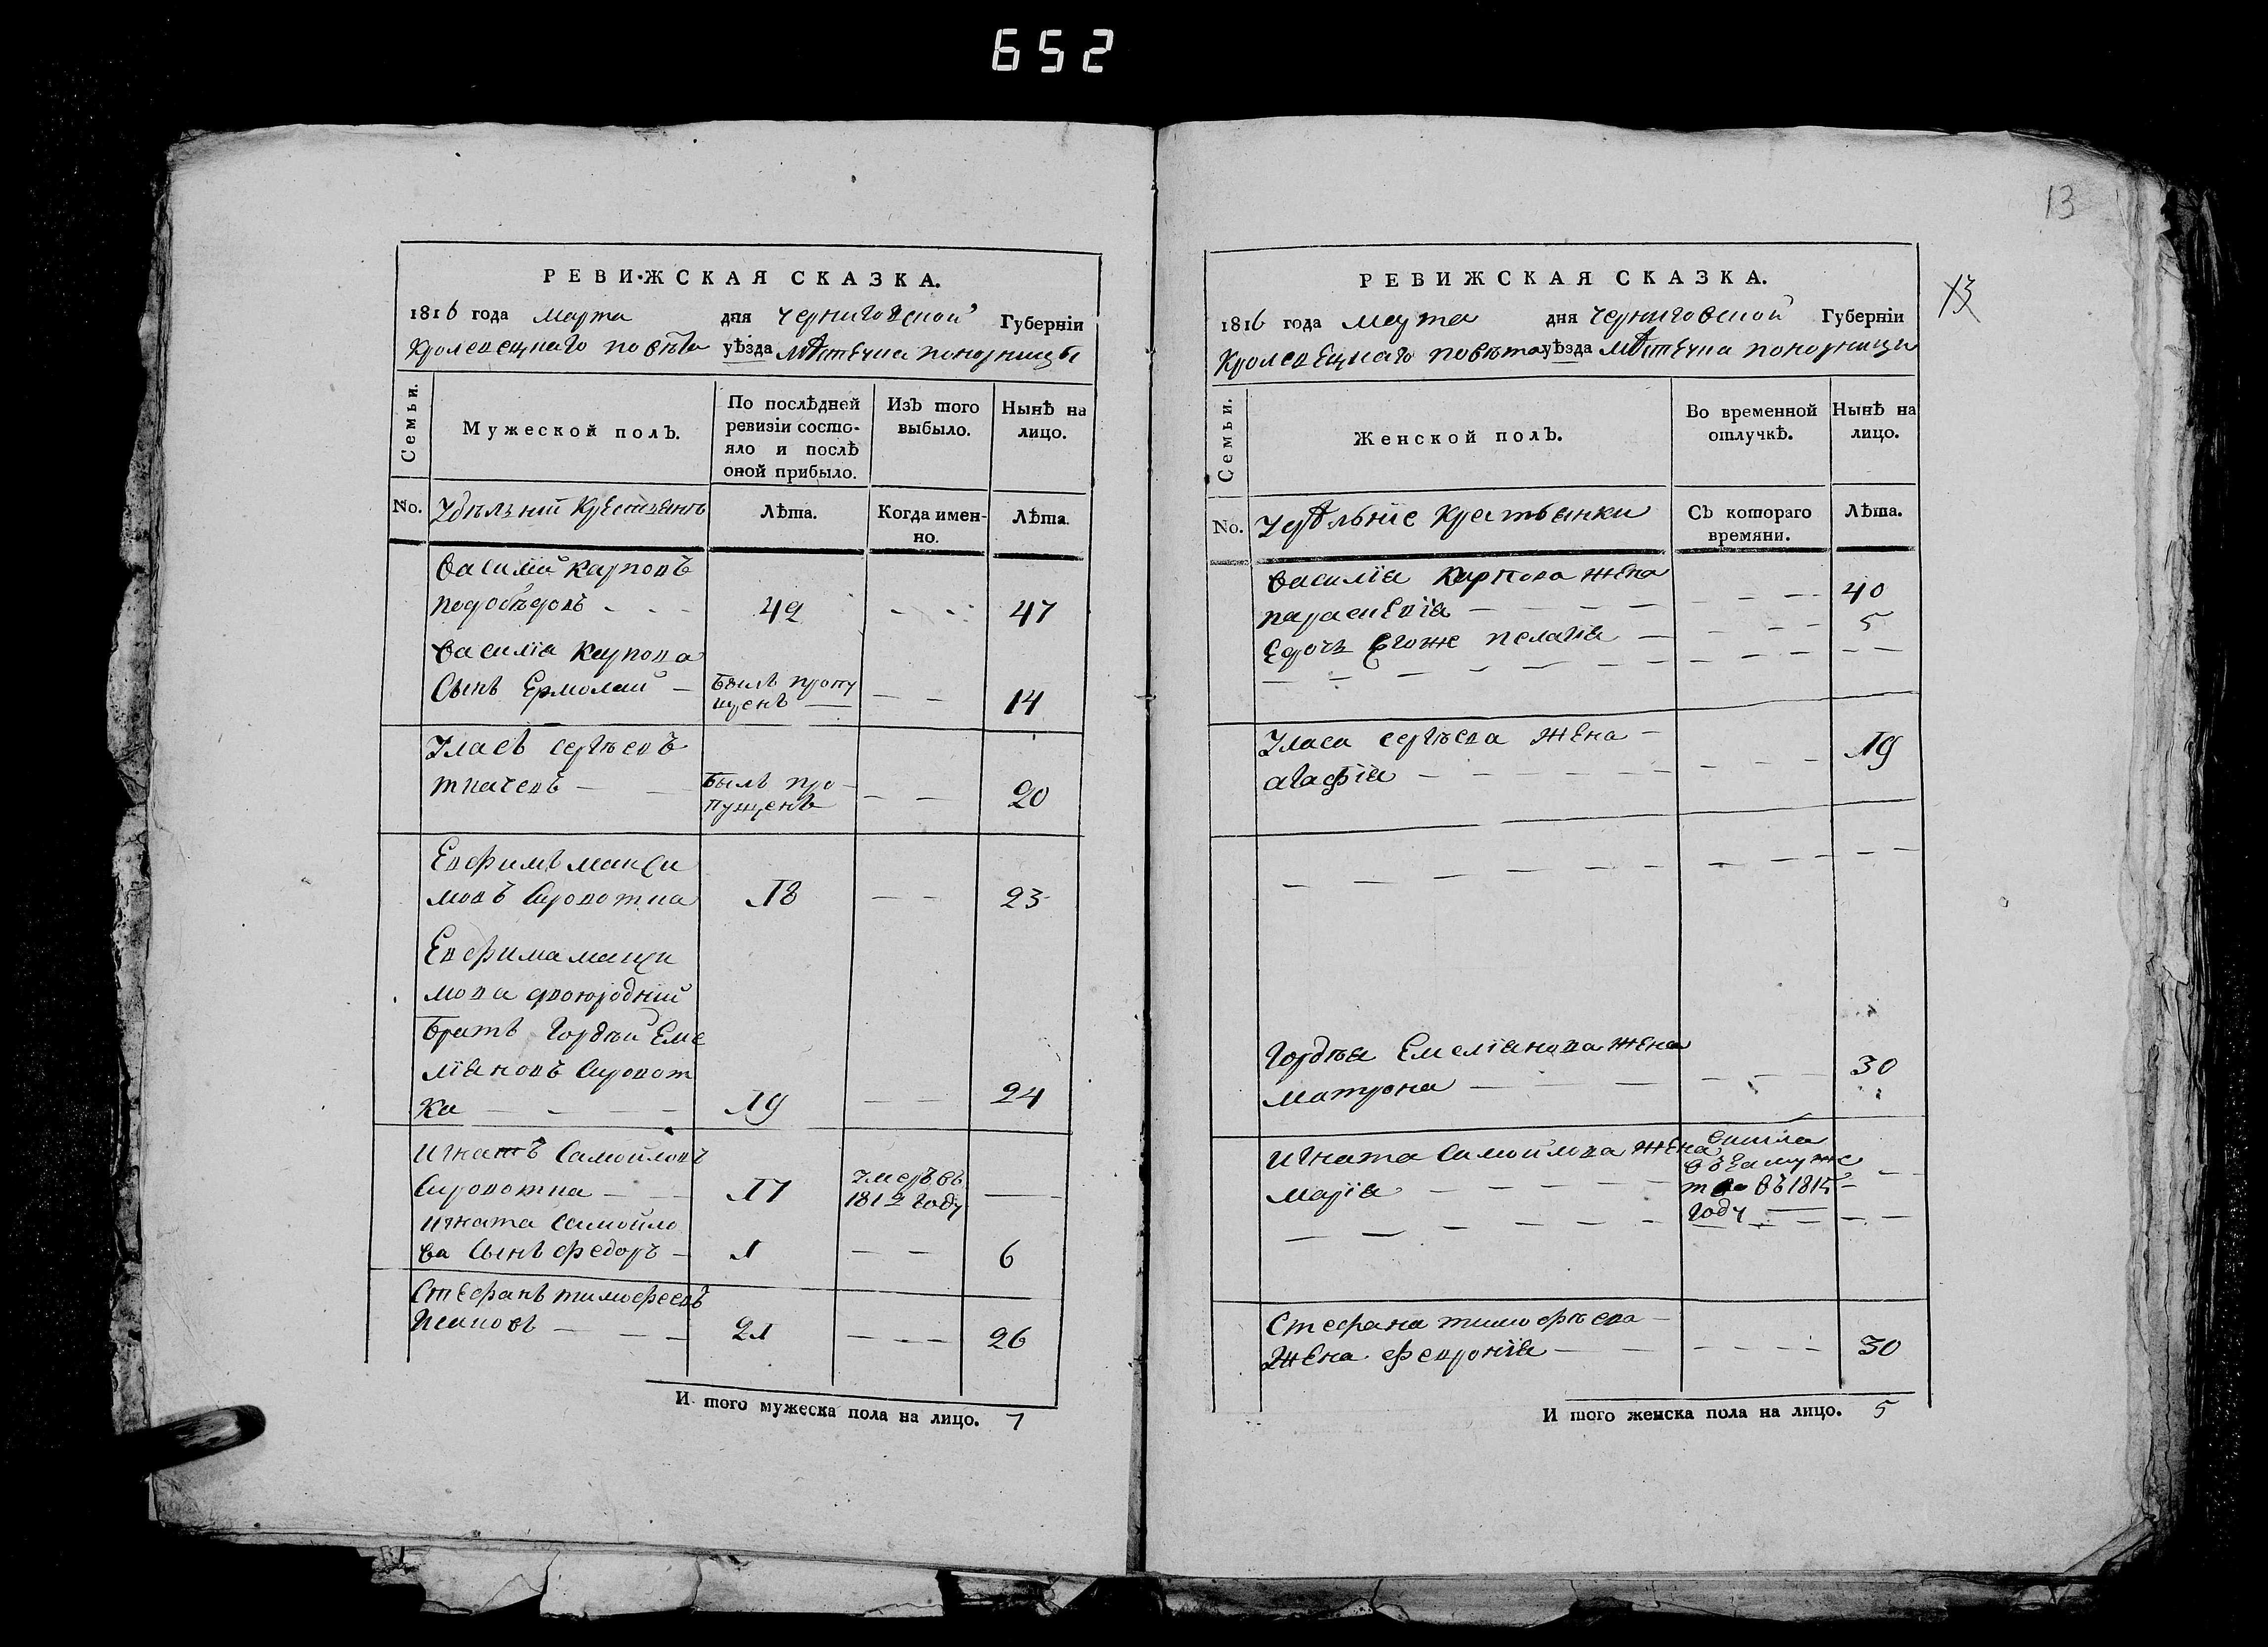 652
РЕВИЖСКАЯ СКАЗКА.
1816 года марта дня Черниговской Губернїи
Кролевецкаго повѣта уѣзда мѣстечка понорницы
Семьи.
Мужеской полъ.
По послѣдней ревизїи состо-
яло и послѣ
оной прибыло.
Изъ того
выбыло.
Нынѣ на
лицо.
No.
Удѣльнїи Крестьянъ
Лѣта.
Когда имен-
но.
Лѣта.
Василїй Карповъ
подобѣдовъ 42 47
Василїя Карпова
Сынъ Ермолай Былъ пропу
щенъ 14
Уласъ сергѣевъ
ткачевъ Былъ про-
пущенъ 20
Евфимъ макси
мовъ Сыровотка 18 23
Евфима макси
мова двоюродний
Братъ Гордѣй Еме
лїановъ Сыровот
ка 19 24
Игнатъ Самойловъ
Сыровотка 17 умеръ въ
1812 Году
Игната Самойло
ва Сынъ Федоръ 1 6
Стефанъ тимофеевъ
Исаковъ 21 26
И того мужеска пола на лицо. 7
13
13
РЕВИЖСКАЯ СКАЗКА.
1816 года марта дня Черниговской Губернїи
Кролевецкаго повѣта уѣзда мѣстечка понорници
Семьи.
Женской полъ.
Во временной
отлучкѣ.
Нынѣ на
лицо.
No.
Удѣльнїе Крестьянки
Съ котораго
времяни.
Лѣта.
Василїя Карпова жена
параскевїя 40
Едочъ Егоже пелагїя 5
Уласа сергѣева жена
агафїя 19
Гордѣя Емелїанова жена
матрона 30
Игната Самойлова жена
марїя вишла
въ замуже
тво въ 1815
Году
Стефана тимофѣева
Жена февронїя 30
И того женска пола на лицо. 5